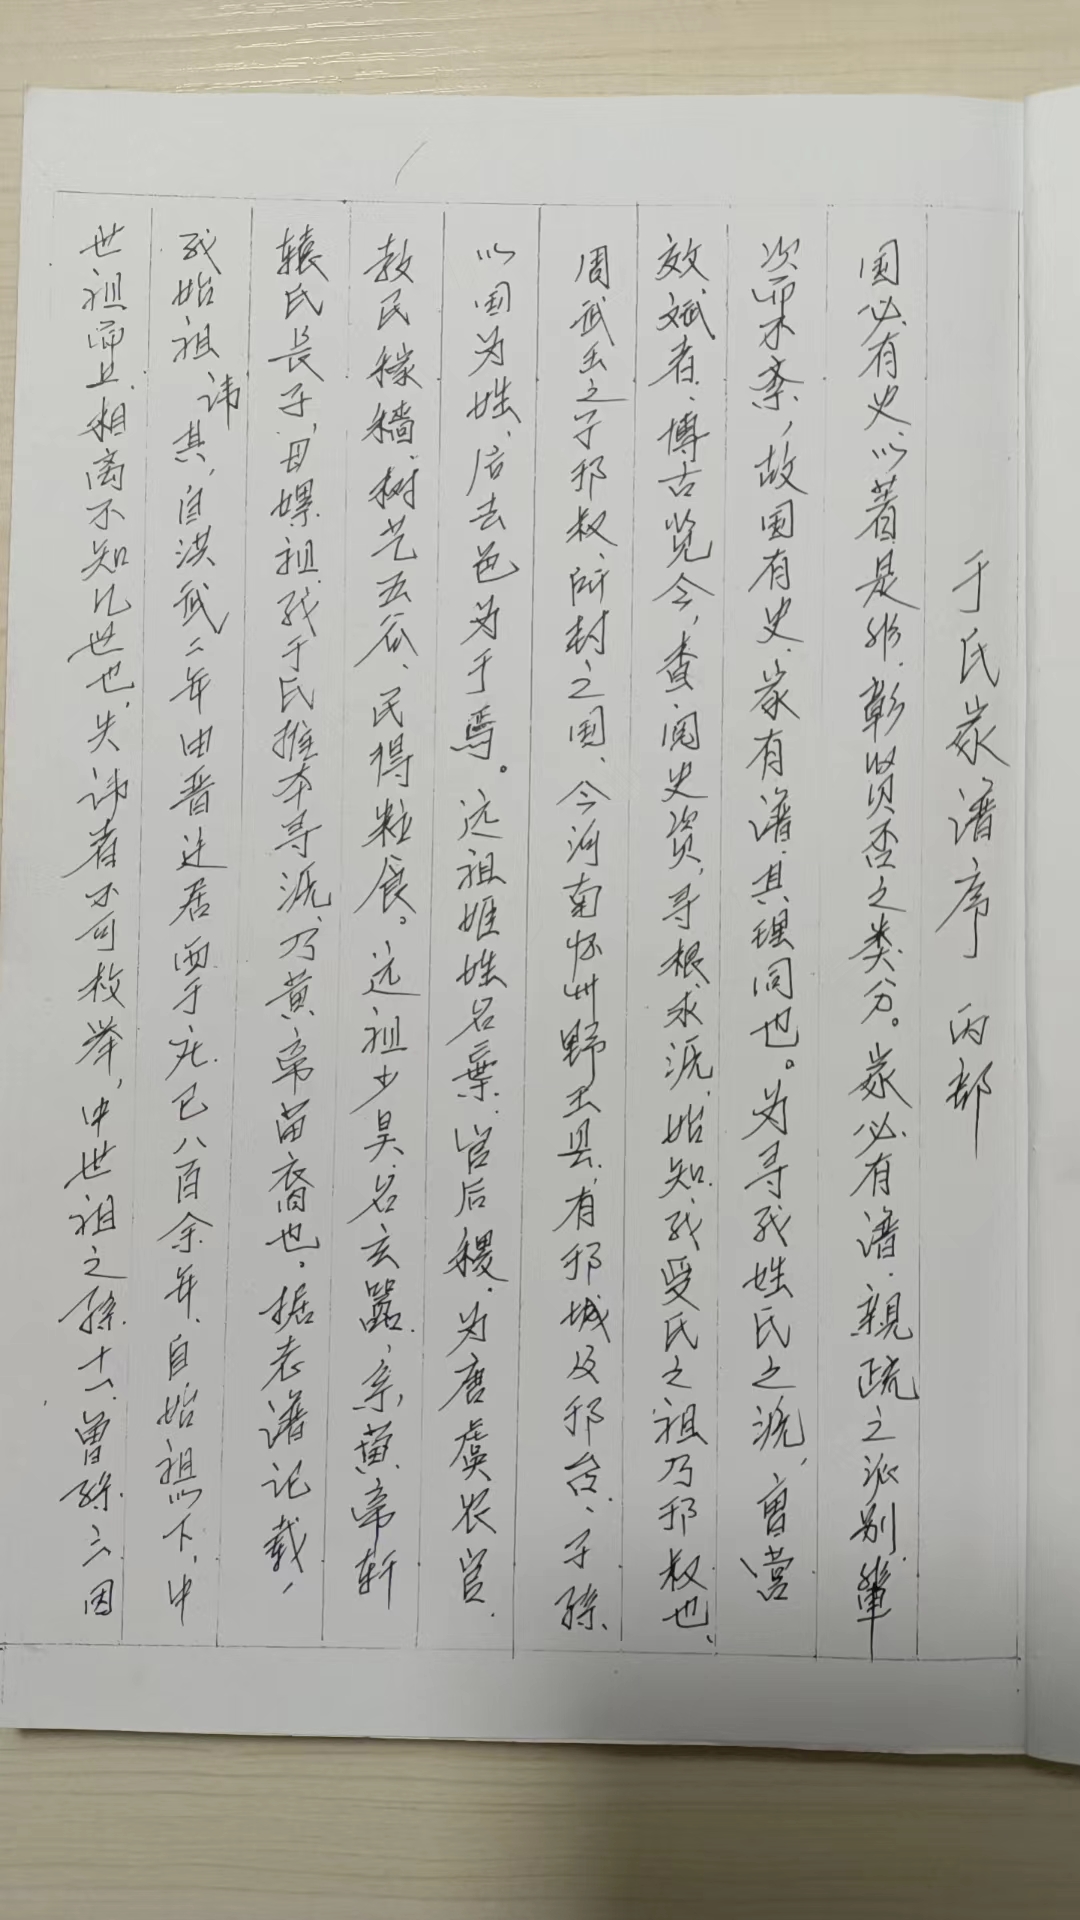 于氏家谱序 丙部
国必有史,以著是非,彰贤否之类分。家必有谱,親疏之派别,輩
次而不紊,故国有史,家有谱,其理同也。为寻我姓氏之源,曾尝
效斌者,博古览今,查阅史资,寻根求源,始知,我受氏之祖乃邘叔也、
周武王之子邘叔,所封之国、今河南怀州野王县,有邘城及邘台、子孫
以国为姓,后去邑为于焉。远祖姬姓名棄,官后稷,为唐虞农官
教民稼穑,树艺五谷、民得粒食。远祖少昊,名玄嚣,系黄帝轩
辕氏長子,母嫘祖,我于氏推本寻源,乃黄帝苗裔也。据老谱记载,
我始祖讳其,自洪武二年由晋迁居西于庄已八百余年,自始祖以下,中
世祖而上,相离不知几世也,失讳者不可枚举,中世祖之孫十六,曾孫三因